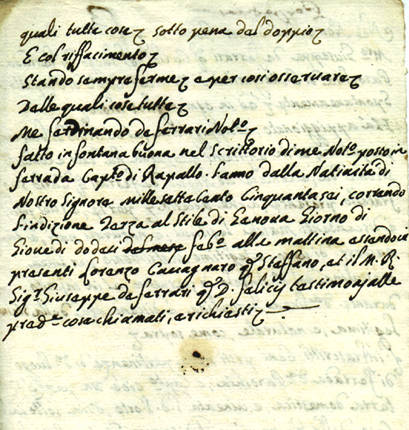 quali tutte cose sotto pena del doppio
E col riffacimento
Stando sempre ferme e per cosi osservare
Dalle quali cose tutte
Me ferdinando de ferrari Not.o
fatto in fontana buona nel Scrittorio di me Not.o posto in
ferrada Cap.to di Rapallo. l'anno dalla Natività di
Nostro Signore mille sette Cento Cinquanta sei, correndo
l'indizione Terza al Stile di Genova Giorno di
Giovedi dodeci del mese feb.o alle mattina essendovi
presenti Lorenzo Cavagnaro q.m Steffano, et il M. R.
Sig.r Giuseppe de ferrari q.m felicis testimonj alle
pred.e cose chiamati, e richiesti